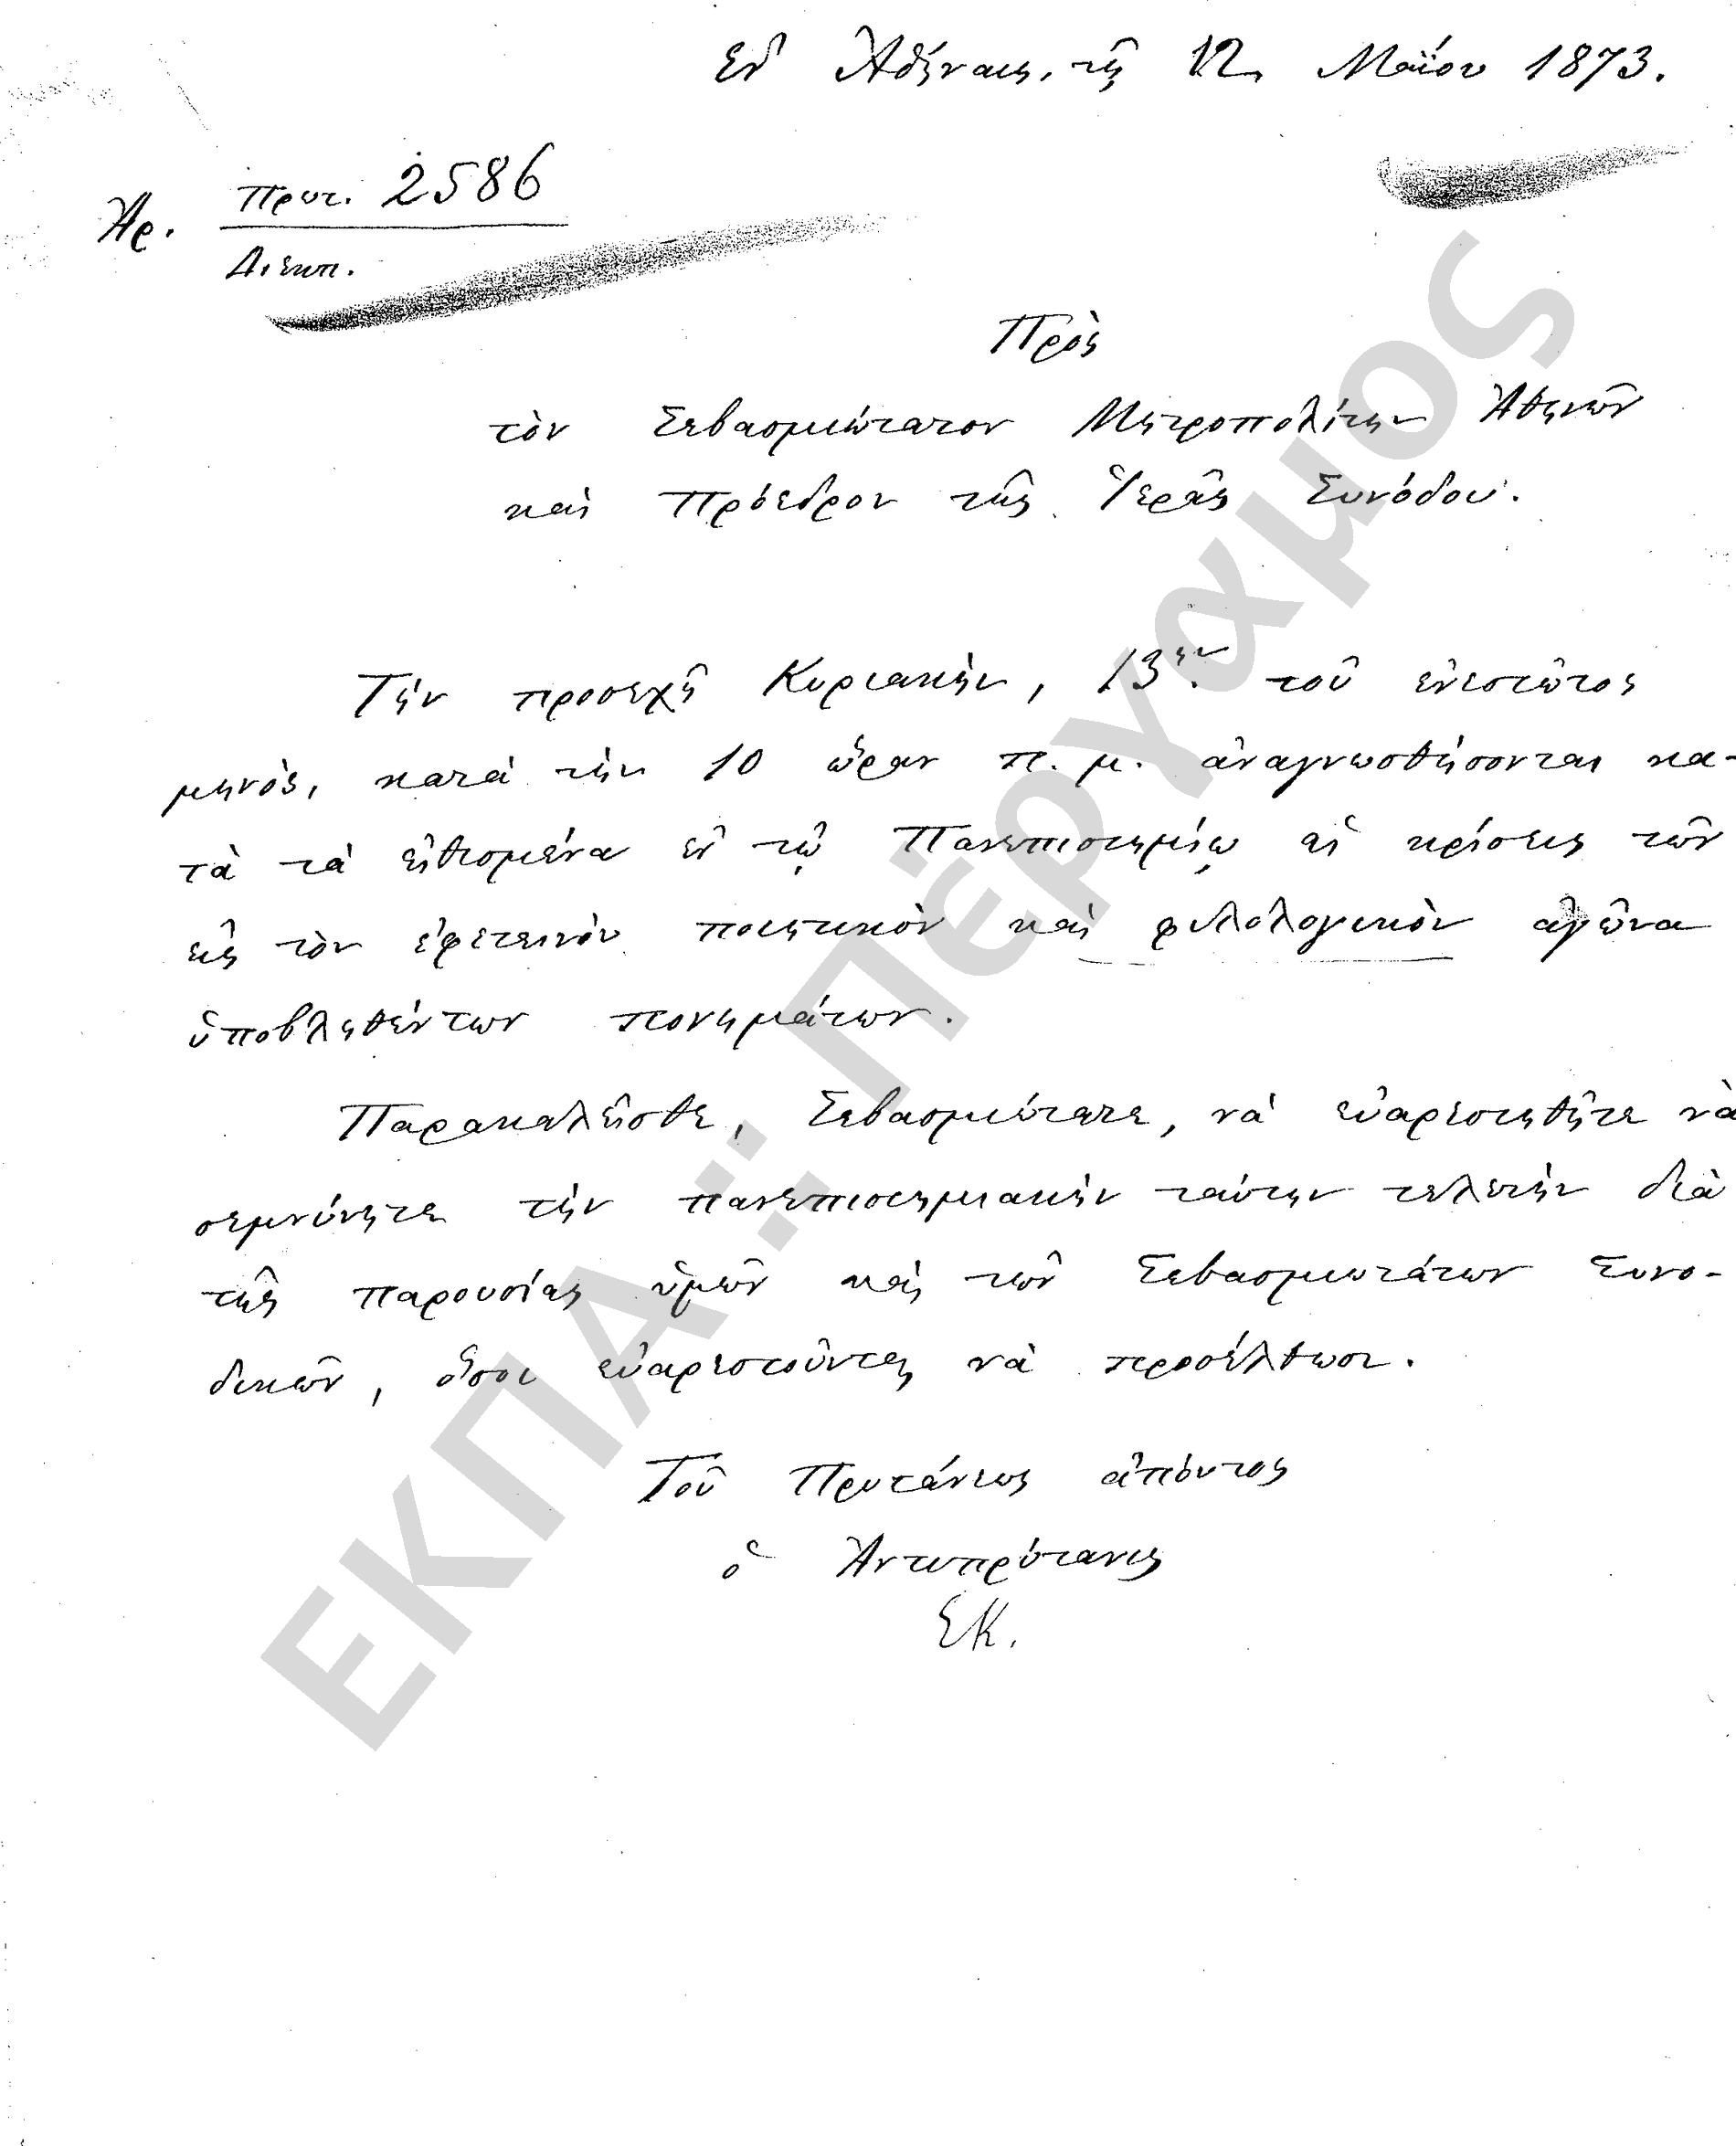 Ἐν Ἀθήναις, τῇ 12 Μαΐου 1873.
Ἀρ. Πρωτ. 2586
Διεκπ.
Πρὸς
τὸν Σεβασμιώτατον Μητροπολίτην Ἀθηνῶν
καὶ Πρόεδρον τῆς Ἱερᾶς Συνόδου.
Τὴν προσεχῆ Κυριακὴν, 13ην τοῦ ἐνεστῶτος
μηνὸς, κατὰ τὴν 10 ὥραν π. μ. ἀναγνωσθήσονται κα-
τὰ τὰ εἰθισμένα ἐν τῷ Πανεπιστημίῳ αἱ κρίσεις τῶν
εἰς τὸν ἐφετεινὸν ποιητικὸν καὶ φιλολογικὸν ἀγῶνα
ὑποβληθέντων πονημάτων.
Παρακαλεῖσθε, Σεβασμιώτατε, νὰ εὐαρεστηθῆτε νὰ
σεμνύνητε τὴν πανεπιστημιακὴν ταύτην τελετὴν διὰ
τῆς παρουσίας ὑμῶν καὶ τῶν Σεβασμιωτάτων Συνο-
δικῶν, ὅσοι εὐαρεστοῦνται νὰ προσέλθωσι.
Τοῦ Πρυτάνεως ἀπόντος
ὁ Ἀντιπρύτανις
ΕΚ.
ΕΚΠΑ :: Πέργαμος